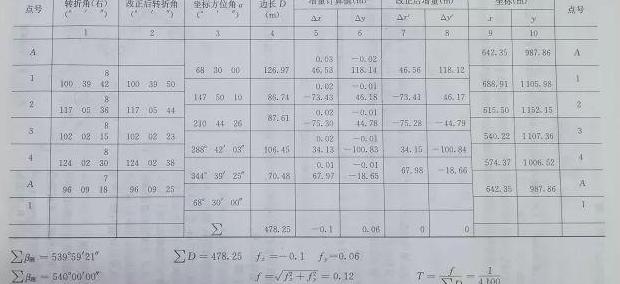 点号 转折角(右) 改正后转折角 坐标方位角 α 边长 D 增量计算值(m) 改正后增量(m) 坐标(m) 点号
(° ′ ″) (° ′ ″) (° ′ ″) (m) Δx Δy Δx′ Δy′ x y
1 2 3 4 5 6 7 8 9 10
A 642.35 987.86 A
0.03 −0.02
68 30 00 126.97 46.53 118.14 46.56 118.12
8
1 100 39 42 100 39 50 688.91 1105.98 1
0.02 −0.01
147 50 10 86.74 −73.43 46.18 −73.41 46.17
8
2 117 05 36 117 05 44 615.50 1152.15 2
0.02 −0.01
210 44 26 87.61 −75.30 44.78 −75.28 −44.79
8
3 102 02 15 102 02 23 540.22 1107.36 3
0.02 −0.01
288° 42′ 03″ 106.45 34.13 −100.83 34.15 −100.84
8
4 124 02 30 124 02 38 574.37 1006.52 4
0.01 −0.01
344° 39′ 25″ 70.48 67.97 −18.65 67.98 −18.66
7
A 96 09 18 96 09 25 642.35 987.86 A
68° 30′ 00″
1 1
∑ 478.25 −0.1 0.06 0 0
∑β测 = 539°59′21″ ∑D = 478.25 fx = −0.1 fy = 0.06
∑β理 = 540°00′00″ f = √fx² + fy² = 0.12 T = f/∑D = 1/4100